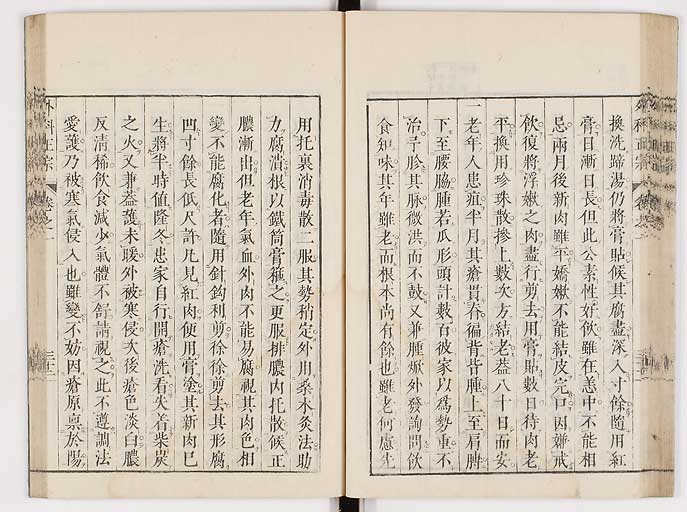 換洗蹄湯仍將膏貼候其腐盡深入寸餘隨用紅
膏日漸日長但此公素性好飲雖在恙中不能相
忌兩月後新肉雖平嬌嫩不能結皮完口因嫌戒
飲復將浮嫩之肉盡行剪去用膏貼數日待肉老
平換用珍珠散摻上數次方結老蓋八十日而安
一老年人患疽半月其瘡貫脊徧背皆腫上至肩髆
下至腰脇腫若瓜形頭計數百彼家以爲勢重不
治予胗其脉微洪而不鼓又兼腫焮外發詢問飲
食知味其年雖老而根本尚有餘也雖老何慮先
用托裏消毒散二服其勢稍定外用桑木灸法助
力腐潰根以鐵筒膏箍之更服排膿內托散候正
膿漸出但老年氣血外肉不能易腐視其肉色相
變不能腐化者隨用針鈎利剪徐徐剪去其形腐
凹寸餘長低尺許凡見紅肉使用膏塗其新肉已
生將半時値隆冬患家自行開瘡洗看失着柴炭
之火又兼蓋護未暖外被寒侵次後瘡色淡白膿
反淸稀飲食減少氣體不舒請視之此不遵調法
愛護乃被寒氣侵入也雖變不妨因瘡原稟於陽
外科正宗
卷之一